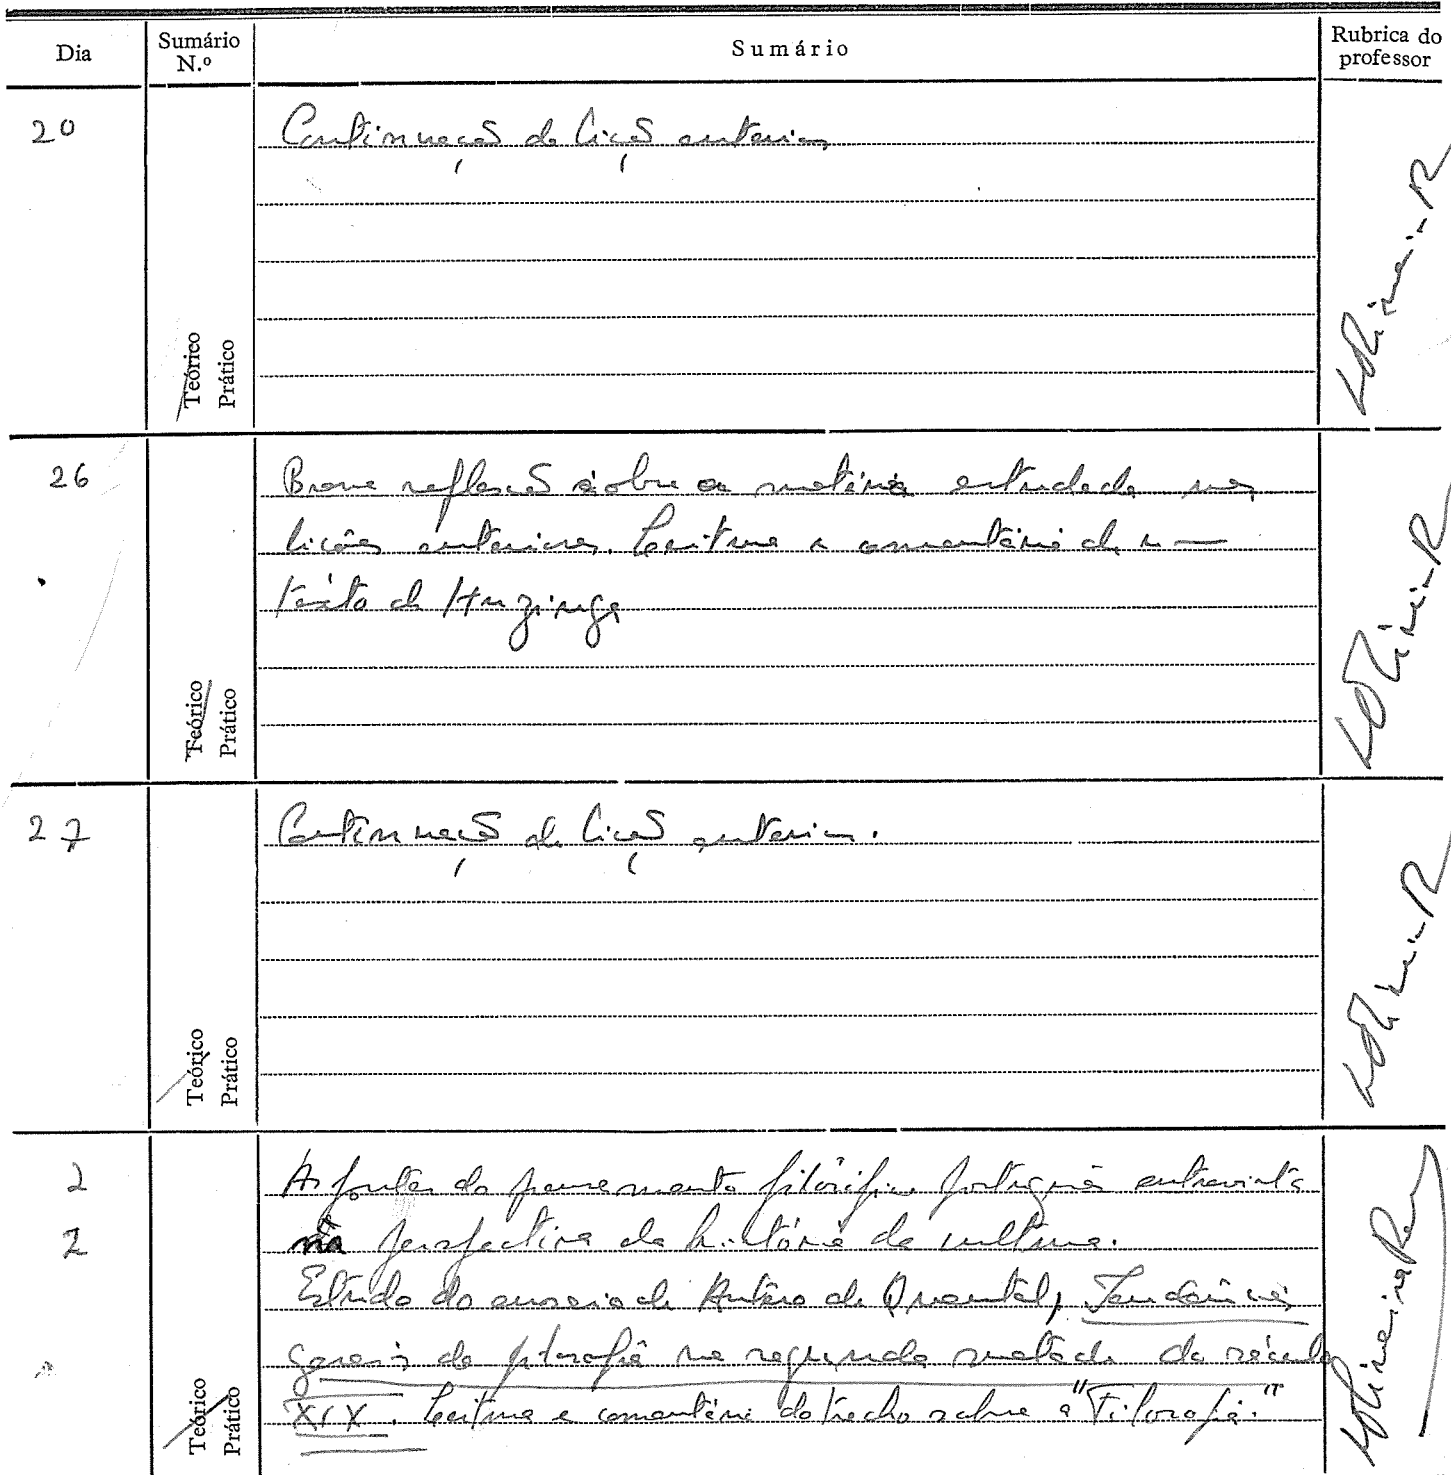 Dia
Sumário N.º
Sumário
Rubrica do professor
20
Continuação da lição anterior
Teórico
Prático
26
Breve reflexão sôbre a matéria estudada nas
lições anteriores. Leitura e comentário de um
texto de Huizinga
Teórico
Prático
27
Continuação da lição anterior.
Teórico
Prático
2
2
As fontes do pensamento filosófico português entrevista
na perspectiva da história da cultura.
Estudo do ensaio de Antero de Quental, Tendências
gerais da filosofia na segunda metade do século
XIX. Leitura e comentário do trecho sobre a "Filosofia."
Teórico
Prático